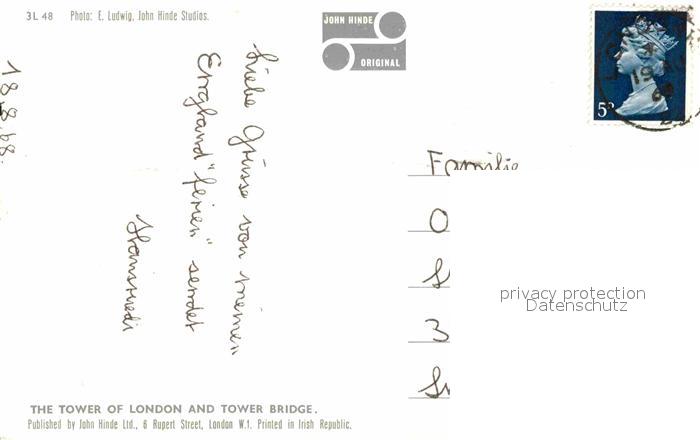 3L 48 Photo: E. Ludwig, John Hinde Studios.
JOHN HINDE
ORIGINAL
5P
18.8.68.
Liebe Grüsse von meinen
England "ferien" sendet
Hansruedi
Familie
O
S
3
privacy protection
Datenschutz
THE TOWER OF LONDON AND TOWER BRIDGE.
Published by John Hinde Ltd., 6 Rupert Street, London W.1. Printed in Irish Republic.